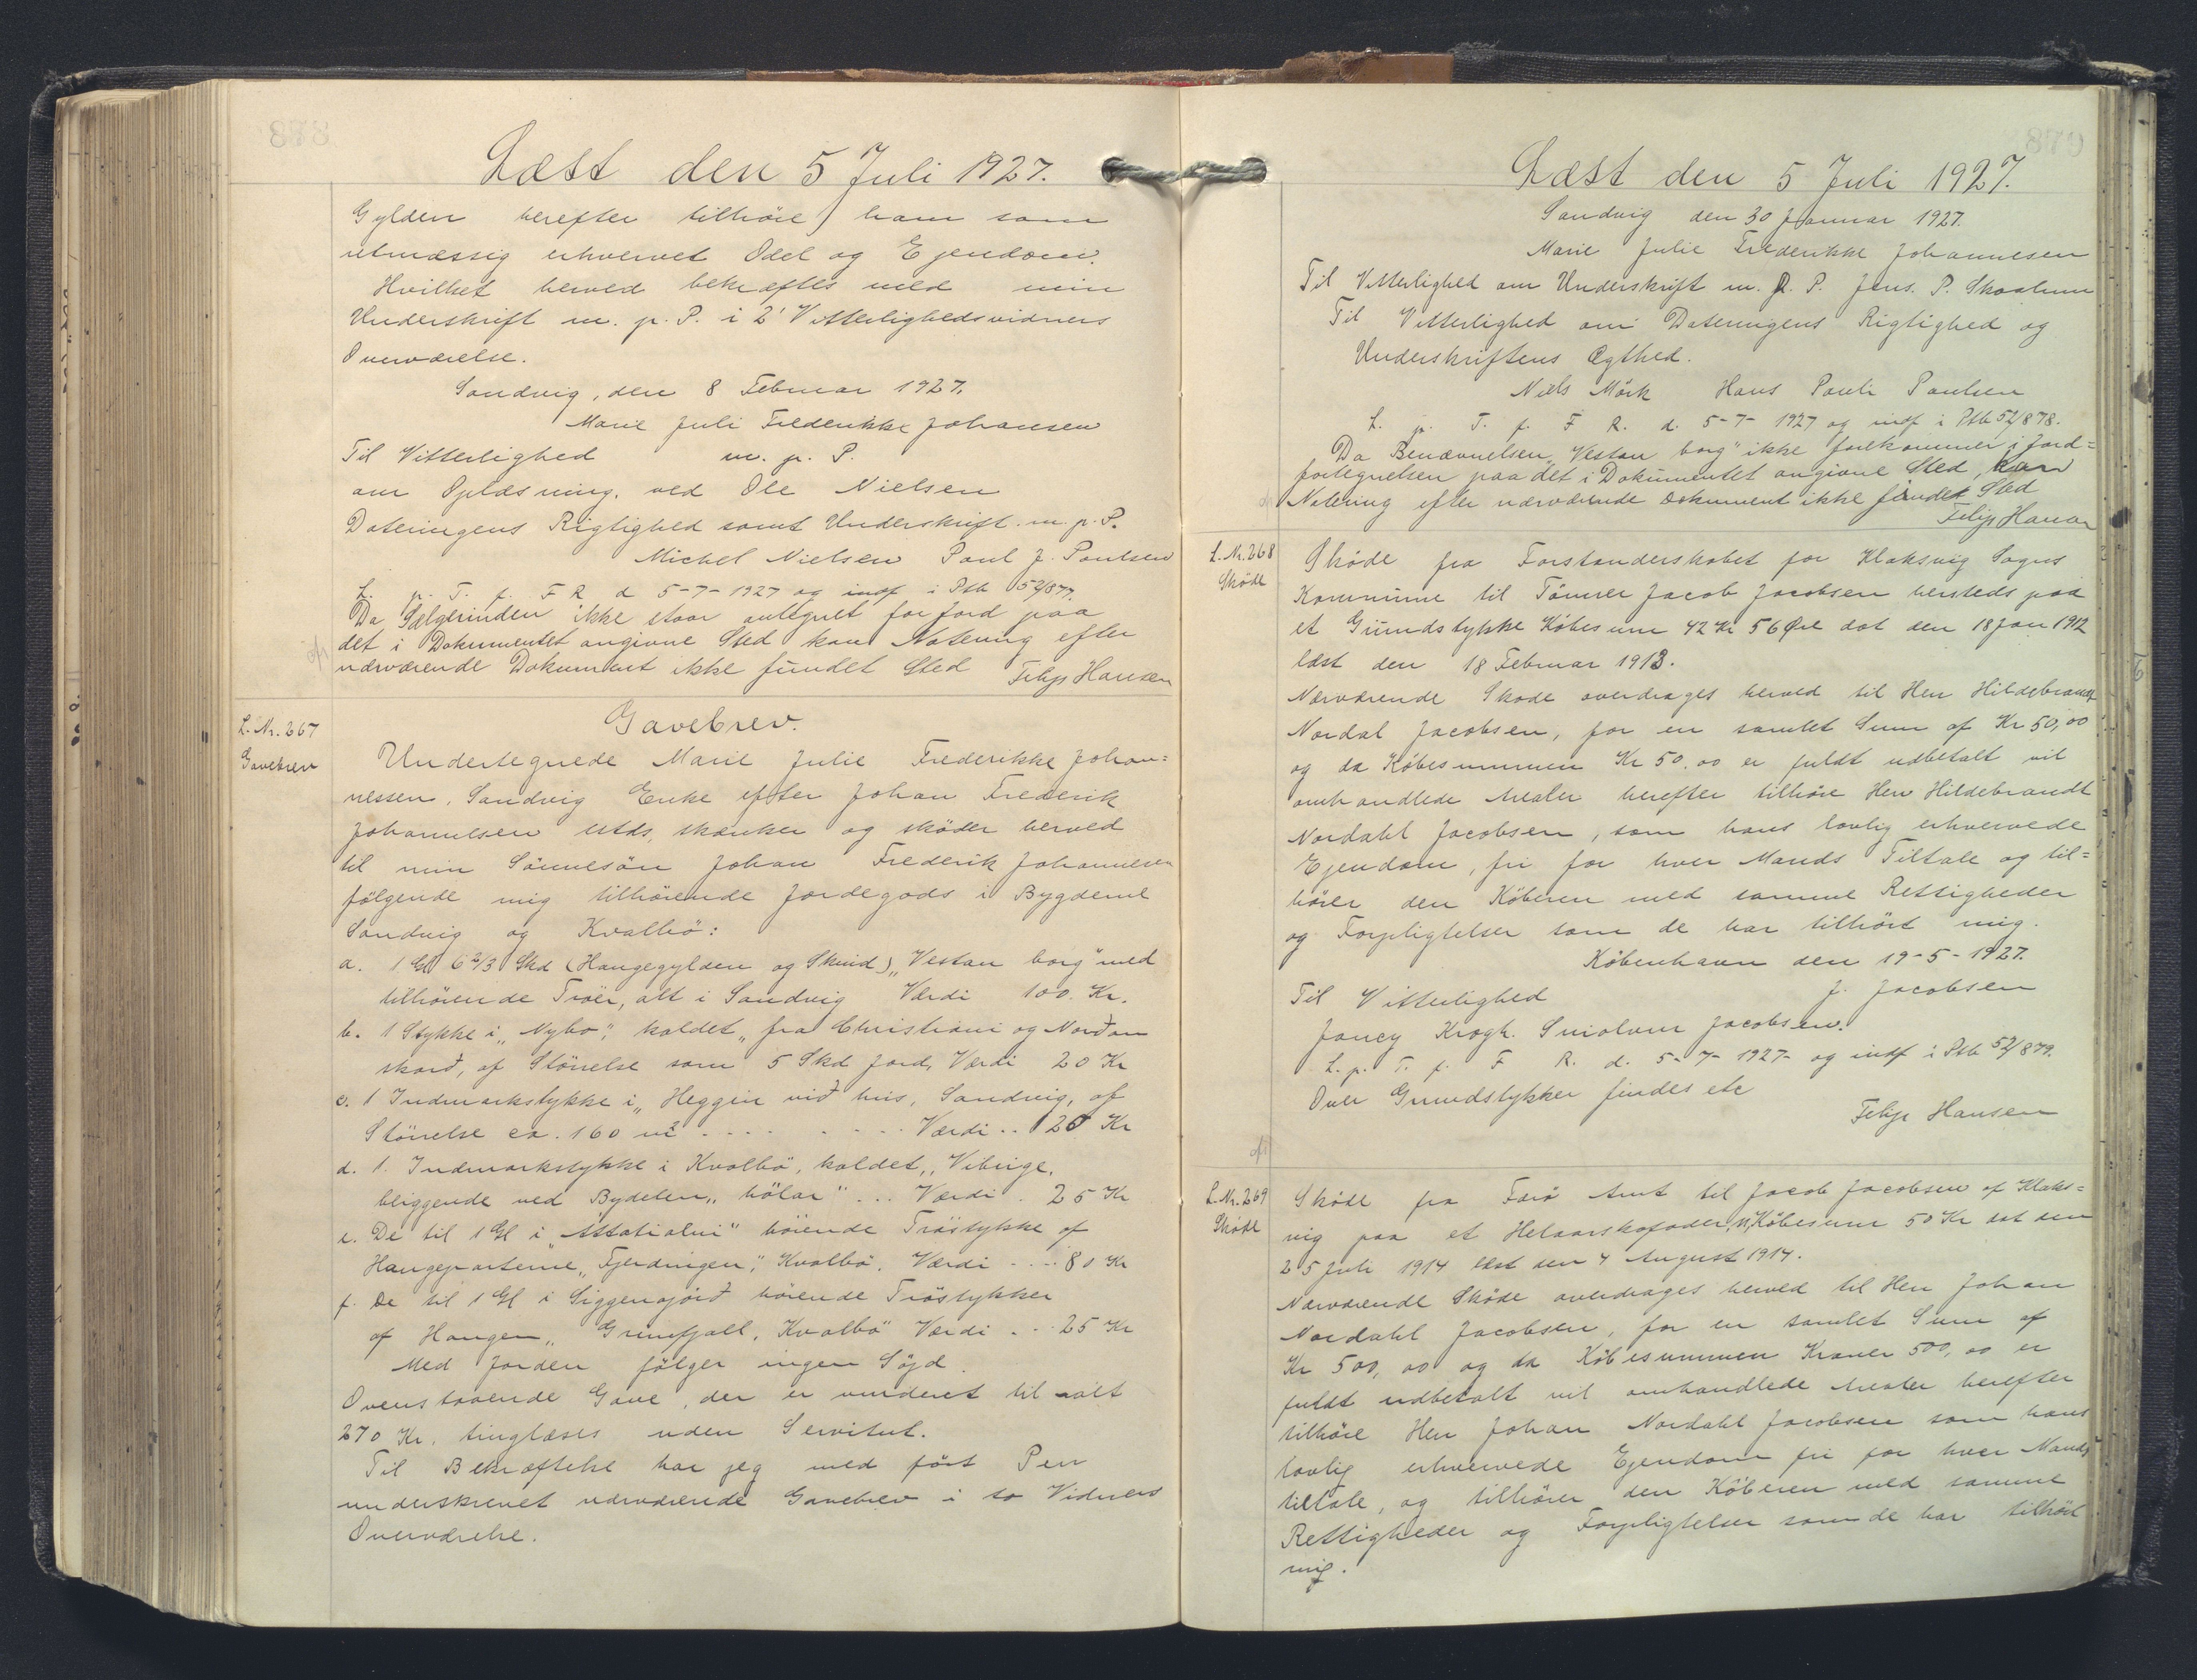 Læst den 5 Juli 1927.
Gylden herefter tilhöre ham som
retmæssig erhvervet Odel og Ejendom.
Hvilket herved bekræftes med min
Underskrift m. p. P. i 2 Vitterlighedsvidners
Overværelse.
Sandvig, den 8 Februar 1927.
Marie Juli Frederikke Johansen
Til Vitterlighed m. p. P.
om Oplæsning, ved Ole Nielsen
Dateringens Rigtighed samt Underskrift m. p. P.
Michel Nielsen Poul J. Poulsen
L. p. T. f. F R d 5-7-1927 og indf i Ptb 52/877.
Da Sælgerinden ikke staar antegnet for Jord paa
det i Dokumentet angivne Sted kan Notering efter
nærværende Dokument ikke fundet Sted Filip Hansen
L. Nr. 267
Gavebrev
Gavebrev.
Undertegnede Marie Julie Frederikke Johan=
nessen, Sandvig Enke efter Johan Frederik
Johannesen stds, skænker og sköder herved
til min Sönnesön Johan Frederik Johannesen
fölgende mig tilhörende Jordegods i Bygderne
Sandvig og Kvalbö:
a. 1 Gl 6 2/3 Skd (Haugegylden og Skind) „Vestan borg" med
tilhörende Tröer, alt i Sandvig Værdi 100. Kr.
b. 1 Stykke i „Nybo", kaldet „fra Christiani og Norðan
skorð, af Störrelse som 5 Skd Jord, Værdi 20 Kr
c. 1 Indmarkstykke i „Heggin við hus, Sandvig, af
Störrelse ca. 160 m² .... .... Værdi .. 20 Kr
d. 1. Indmarkstykke i Kvalbö, kaldet „Vibuge.
beliggende ved Bydelen „hölar" ... Værdi . 25 Kr
e. De til 1 Gl i „Attatialni" hörende Tröstykke af
Haugeparterne „Fjerdingen", Kvalbö. Værdi .... 80 Kr
f. De til 1 Gl i Siggenajörð hörende Tröstykker
af Haugen „Grinufjall, Kvalbö" Værdi ... 25 Kr
Med Jorden fölger ingen Söjd.
Ovenstaaende Gave, der er vurderet til ialt
270 Kr. tinglæses uden Servitut.
Til Bekræftelse har jeg med fört Pen
underskrevet nærværende Gavebrev i to Vidners
Overværelse.
Læst den 5 Juli 1927.
Sandvig den 30 Januar 1927.
Marie Julie Frederikke Johannesen
Til Vitterlighed om Underskrift m. p. P. Jens. P. Skaalum
Til Vitterlighed om Dateringens Rigtighed og
Underskriftens Ægthed.
Niels Mörk Hans Pauli Poulsen
L. p. T. f. F R. d. 5-7-1927 og indf i Ptb 52/878.
Da Benævnelsen „Vestan borg" ikke forekommer i Jord=
fortegnelsen paa det i Dokumentet angivne Sted, kan
Notering efter nærværende Dokument ikke findet Sted
Filip Hansen
L. Nr. 268
Sköde
Sköde fra Forstanderskabet for Klaksvig Sogns
Kommune til Tömrer Jacob Jacobsen hersteds paa
et Grundstykke Köbesum 42 Kr 56 Öre dat den 18 Jan 1912
læst den 18 Februar 1913.
Nærværende Sköde overdrages herved til Herr Hildebrandt
Nordal Jacobsen, for en samlet Sum af Kr 50,00
og da Köbesummen Kr 50.00 er fuldt udbetalt vil
omhandlede Arealer herefter tilhöre Herr Hildebrandt
Nordahl Jacobsen, som hans lovlig erhvervede
Ejendom, fri for hver Mands Tiltale og til=
hörer den Köberen med samme Rettigheder
og Forpligtelser som de har tilhört mig.
København den 19-5-1927.
Til Vitterlighed J. Jacobsen
Jancy Krogh. Smolum Jacobsen.
L. p. T. f. F R. d. 5-7-1927- og indf i Ptb 52/879.
Over Grundstykker findes etc
Filip Hansen
L. Nr. 269
Sköde
Sköde fra Færö Amt til Jacob Jacobsen af Klaks=
vig paa et Helaarskofoder, Köbesum 50 Kr dat den
25 Juli 1914 læst den 4 August 1914.
Nærværende Sköde overdrages herved til Herr Johan
Nordahl Jacobsen, for en samlet Sum af
Kr 500,00 og da Köbesummen Kroner 500,00 er
fuldt udbetalt vil omhandlede Arealer herefter
tilhöre Herr Johan Nordahl Jacobsen som hans
lovlig erhvervede Ejendom fri for hver Mands
tiltale, og tilhörer den Köberen med samme
Rettigheder og Forpligtelser som de har tilhört
mig.